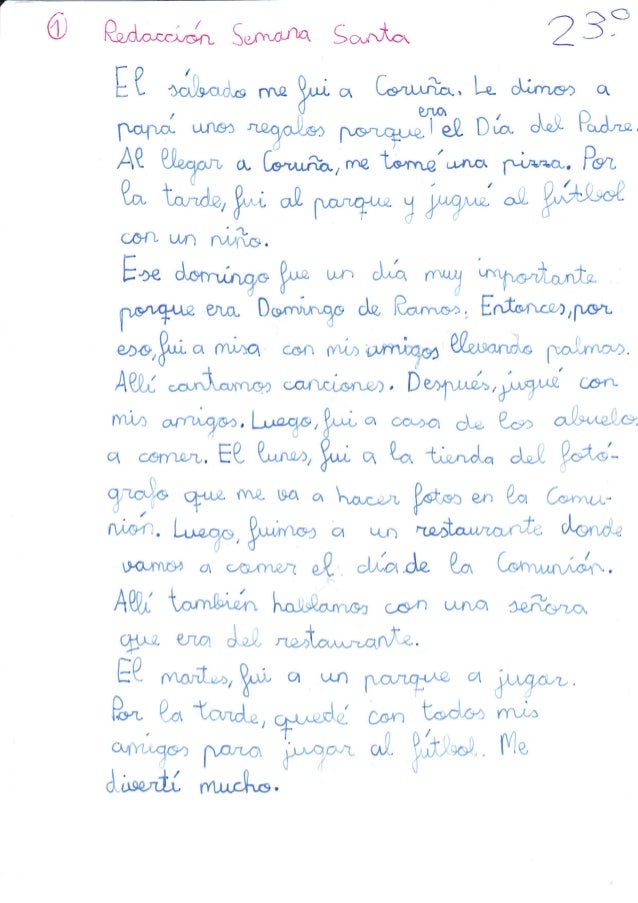 ① Redacción Semana Santa 23.º
El sábado me fui a Coruña. Le dimos a
papá unos regalos porque era el Día del Padre.
Al llegar a Coruña, me tomé una pizza. Por
la tarde, fui al parque y jugué al fútbol
con un niño.
Ese domingo fue un día muy importante
porque era Domingo de Ramos. Entonces, por
eso, fui a misa con mis amigos llevando palmas.
Allí cantamos canciones. Después, jugué con
mis amigos. Luego, fui a casa de los abuelos
a comer. El lunes, fui a la tienda del fotó-
grafo que me va a hacer fotos en la Comu-
nión. Luego, fuimos a un restaurante donde
vamos a comer el día de la Comunión.
Allí también hablamos con una señora
que era del restaurante.
El martes, fui a un parque a jugar.
Por la tarde, quedé con todos mis
amigos para jugar al fútbol. Me
divertí mucho.